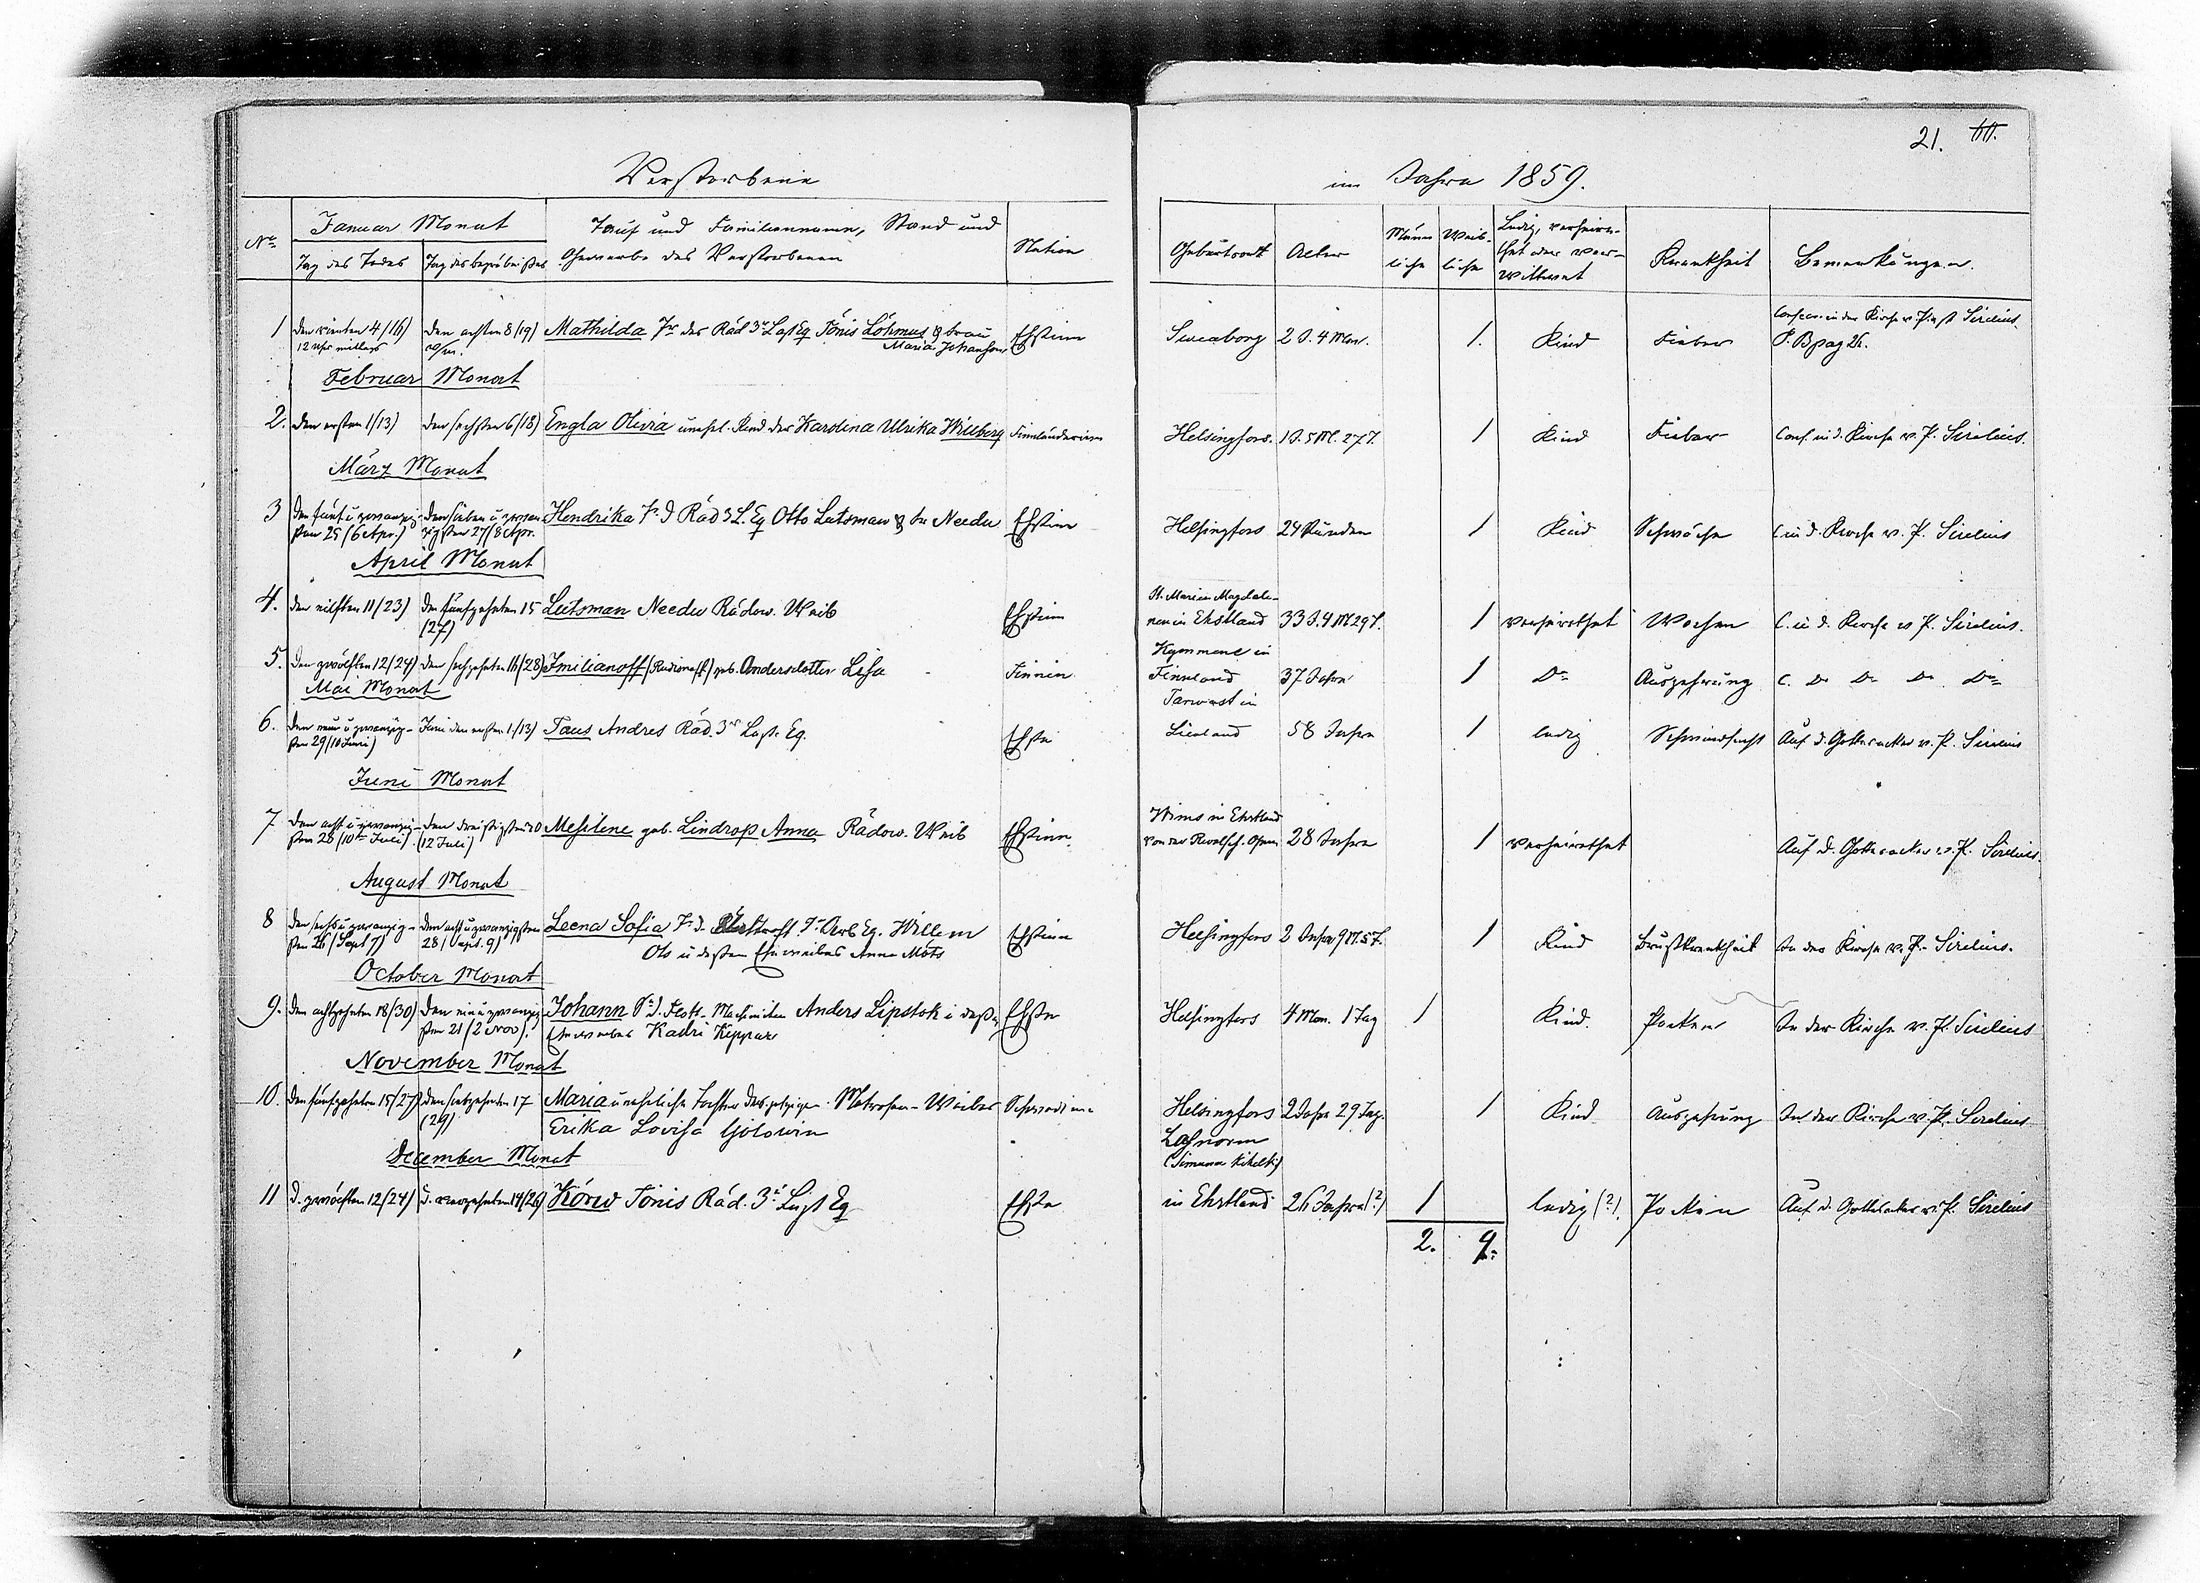 21.
Verstorbene im Jahre 1859.
No Januar Monat Tauf und Familiennamen, Stand und Nation Geburtsort Alter Männ Weib- Ledig, verheira-
Tag des Todes Tag des Begräbnißes Gewerbe des Verstorbenen liche liche thet oder ver- Krankheit Bemerkungen.
wittwet
1 den vierten 4/(16) den achten 8 (19) Mathilda Tr des Räd 3r Last Eq Tönis Löhmus & Frau Ehstinn Sveaborg 2 J. 4 Mon. 1. Kind Fieber in der Kirche v. Past Sirelius
12 Uhr mittags Maria Johanson P. B pag 26.
Februar Monat
2. den ersten 1/13) den sechsten 6/(18) Engla Olivia unehl. Kind der Karolina Ulrika Willberg Finnländerinn Helsingfors. 1 J. 5 M. 27 T. 1 Kind Fieber Conf. in d. Kirche v. P. Sirelius.
März Monat
3 den fünf u zwanzig- den sieben u zwan Hendrika Tr d Räd 3 L. Eq Otto Lutsman & der Needu Ehstinn Helsingfors 24 Stunden 1 Kind Schwäche C in d. Kirche v. P. Sirelius
sten 25 (6 Apr.) zigsten 27/8 Apr.
April Monat
4. den eilften 11/23) den fünfzehnten 15 Lutsman Needu Rädow. Weib Ehstinn St. Marien Magdale-
(27) nen in Ehstland 33 J. 4 M 29 T. 1 verheirathet Wochen C. in d. Kirche v P. Sirelius.
5. den zwölften 12/24) den sechzehnten 16/(28) Imilianoff geb. Andersdotter Lisa Finnin Kymmene in
Finnland 37 Jahre 1 Do Auszehrung C. Do Do Do Do
Mai Monat
6. den neun u zwanzig- Juni den ersten 1/13) Taus Andres Räd. 3r Last. Eq. Ehste Tarwast in
sten 29/10 Juni) Lievland 58 Jahre 1 ledig Schwindsucht Auf d. Gottesacker v. P. Sirelius
Juni Monat
7 den acht u zwanzig- den dreißigsten 30 Mesilene geb. Lindrop Anna Rädow. Weib Ehstinn. Wims in Ehstland
sten 28 (10ten Juli) (12 Juli) von der Revalsch. 28 Jahre 1 verheirathet Auf d. Gottesacker v. P. Sirelius.
August Monat
8 den sechs u zwanzig- den acht u zwanzigsten Leena Sofia Tr d. Willem Ehstinn Helsingfors 2 Jahre 9 M. 5 T. 1 Kind Brustkrankheit In der Kirche v. P. Sirelius.
sten 26 (Sept 7) 28 (Sept. 9) Ots u deßen Eheweibes Anna Mats
October Monat
9. den achtzehnten 18/30) den ein u zwanzig- Johann Sn d. Flott- Maschinisten Anders Lipstok u deß. Ehste Helsingfors 4 Mon. 1 Tag 1 Kind. Pocken In der Kirche v. P. Sirelius
sten 21 (2 Nov). Eheweibes Kadri Keppar
November Monat
10. den fünfzehnten 15/27) den siebzehnten 17 Maria uneheliche Tochter des jetzigen Matrosen-Weibes Schwedinn Helsingfors 2 Jahre 29 Tag. 1 Kind Auszehrung In der Kirche v. P. Sirelius
(29) Erika Lovisa Golowin
December Monat
11 d. zwölften 12/24) d. vierzehnten 14/26) Körw Tönis Räd. 3r Last Eq Ehste (Simuna Kihelk.)
in Ehstland 26 Jahre (?) 1 ledig (?). Pocken Auf d. Gottesacker v. P. Sirelius
2. 9.